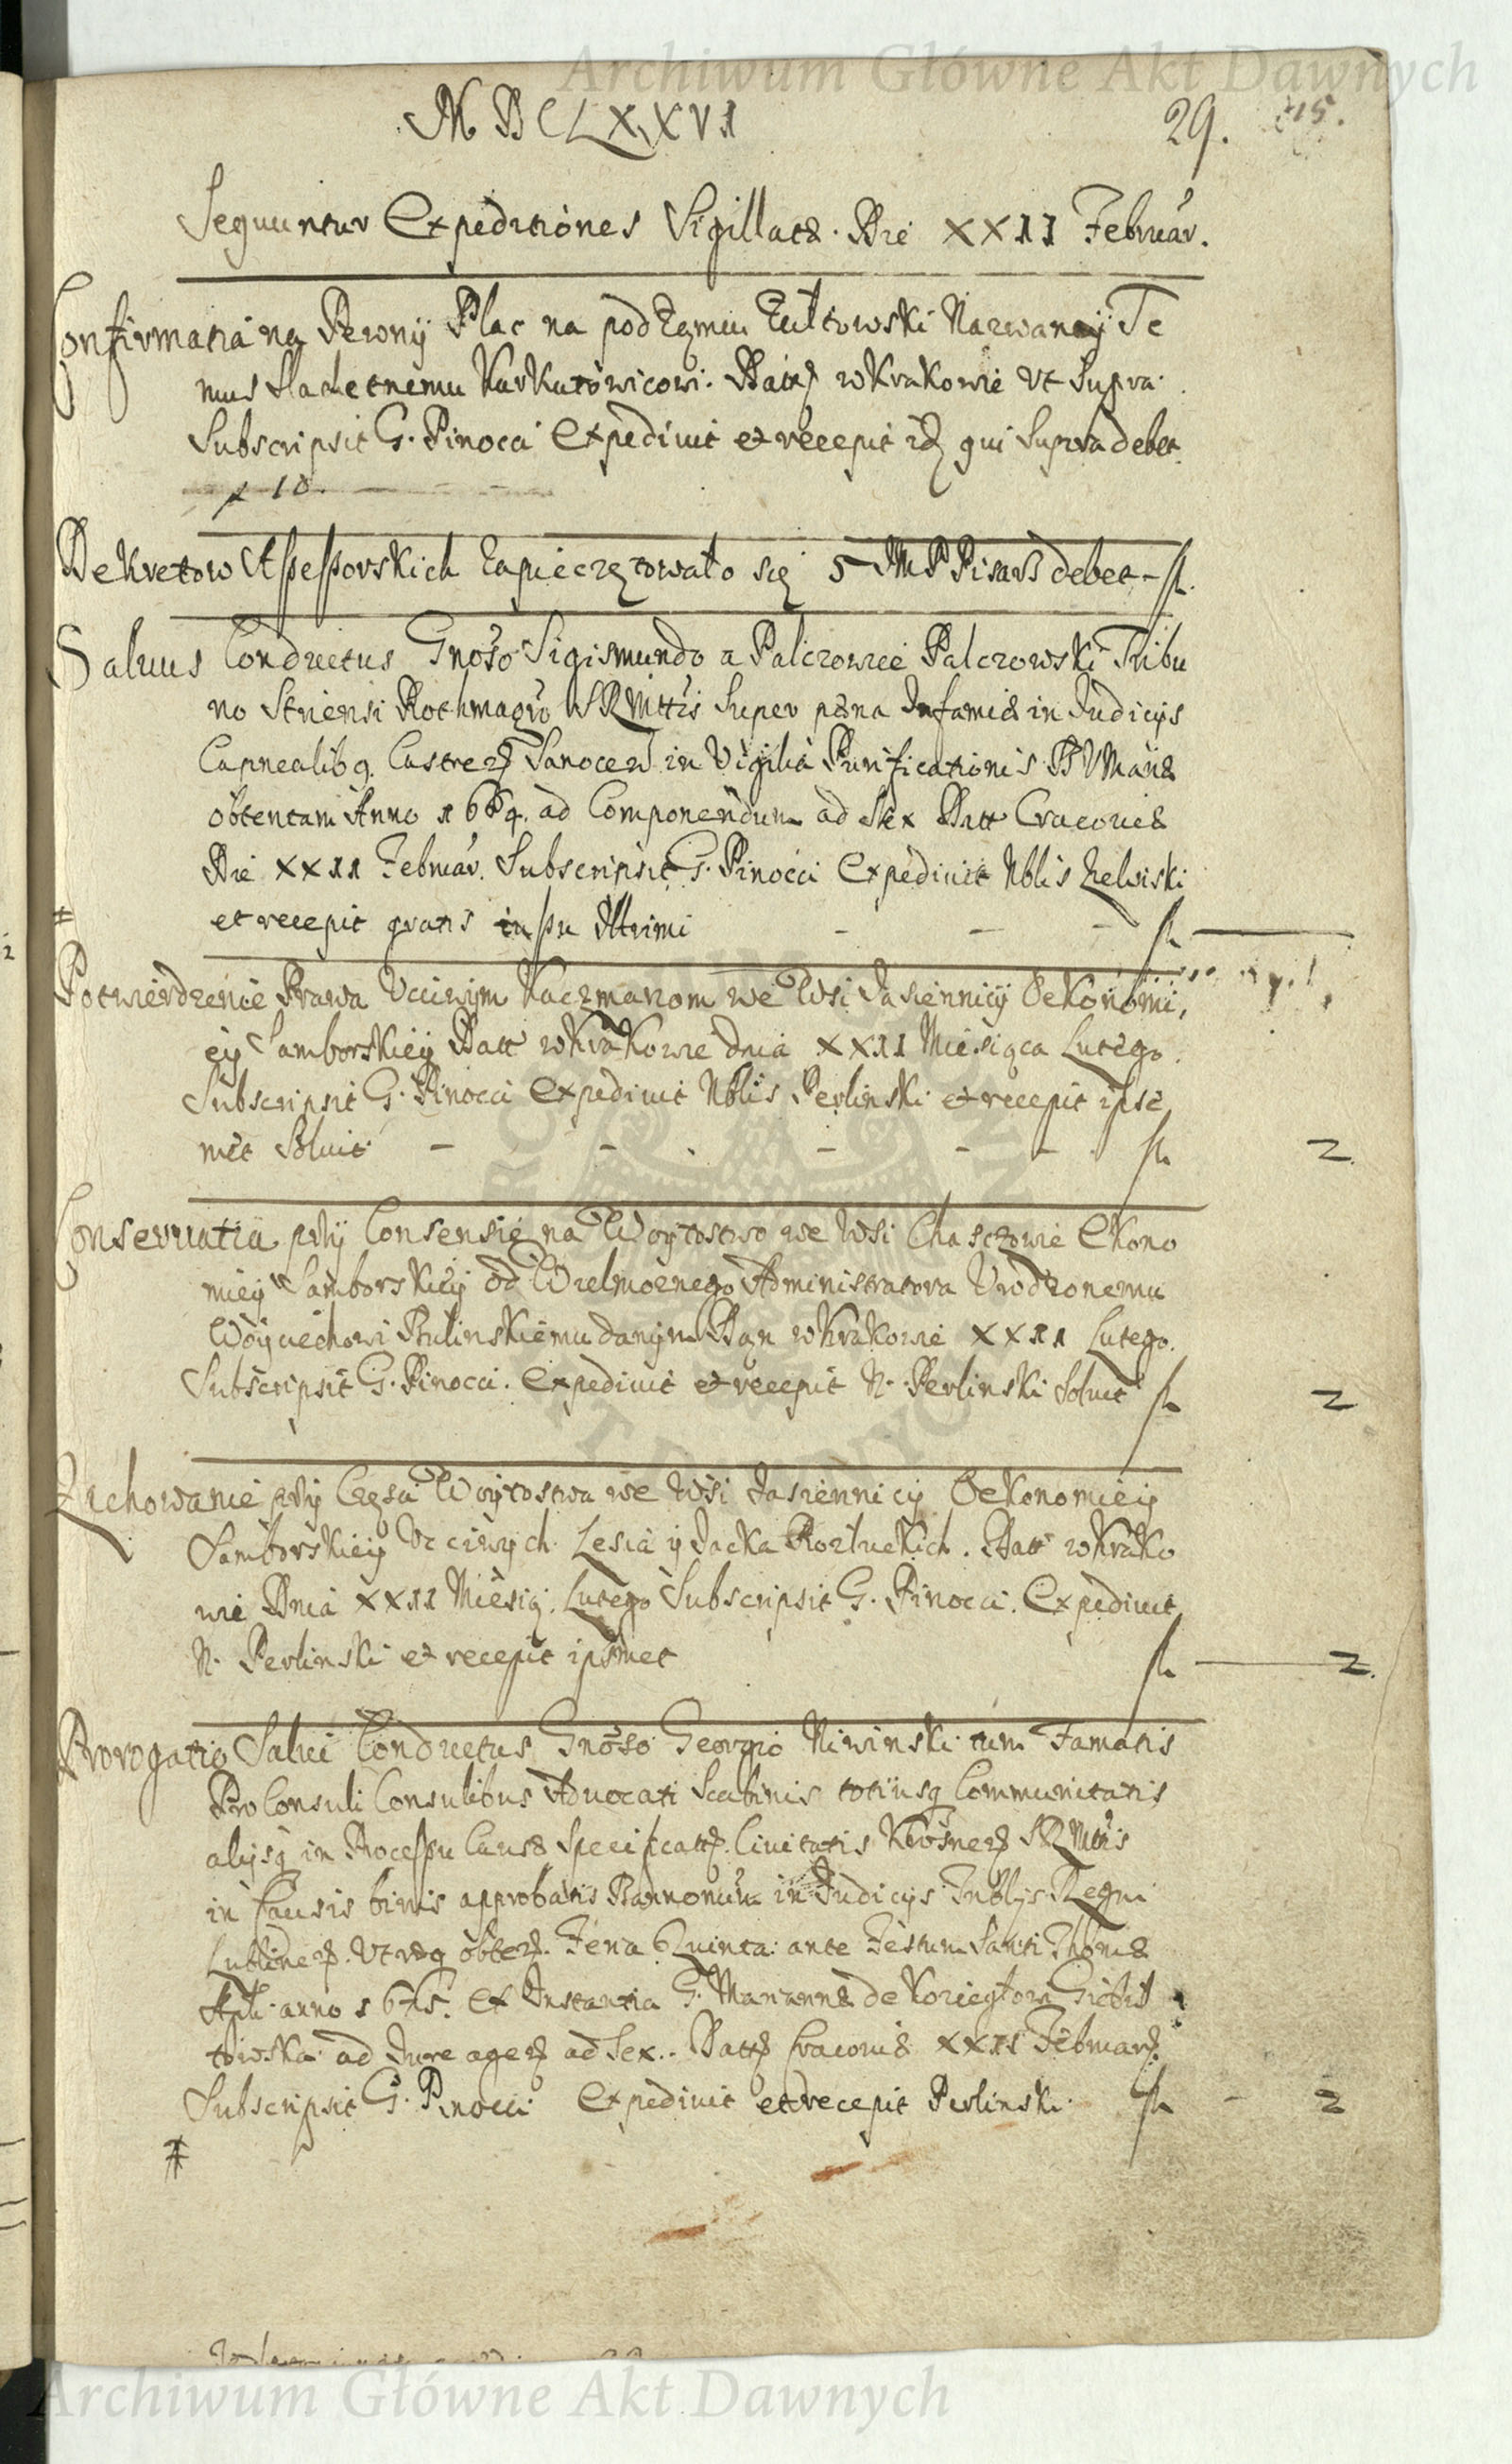 Archiwum Główne Akt Dawnych
MDCLXXVI 29. 45.
Sequuntur Expeditiones Sigillatæ. Die XXII Februar.
Confirmatia na Pewny Plac na pod Zamcu Nazwany Te
mus Slachetnemu Kurkutowicowi. w Krakowie Ut Supra.
Subscripsit G. Pinocci Expediuit et recepit qui Supra debet
f 10.
Dekretow Assessorskich Zapieczętowało się 5 JMP Pisarz debet - fl.
Saluus Conductus Gnoso Sigismundo a Palczowice Palczowski Tribu
no Striensi Rothmagro SRMttis Super pæna Infamiæ in Iudicijs
Castren Sanocen in Vigilia Purificationis BVMariæ
obtentam Anno ad Componendum ad Sex Datt Cracouiæ
Die XXII Februar. Subscripsit G. Pinocci Expediuit Nblis Zelwski
et recepit gratis iussu Illtrimi - - - fl
Potwierdzenie Prawa Vcciwym Kaczmarzom we Wsi Jasiennicy Oekonomi,
ey Samborskiey Datt w Krakowie dnia XXII Miesiąca Lutego.
Subscripsit G. Pinocci Expediuit Nblis Perlinski et recepit ipse
met Soluit - - - - - fl 2.
Conseruatia przy Consensie na Woytostwo we Wsi Chasczowie Ekono
miey Samborskiey od Wielmoznego Administratora Vrodzonemu
Woyciechowi Bulinskiemu danym Dan w Krakowie XXII Lutego.
Subscripsit G. Pinocci. Expediuit et recepit N. Perlinski Soluit fl 2
Zachowanie przy Częsci Woytostwa we Wsi Jasiennicy Oekonomiey
Samborskiey Vcciwych Lesia y Jacka Rozluckich. Datt w Krako
wie Dnia XXII Miesią. Lutego Subscripsit G. Pinocci. Expediuit
N. Perlinski et recepit ipsmet fl 2.
Prorogatio Salui Conductus Gnoso Georgio Niwinski tum Famatis
Pro Consuli Consulibus Aduocati Scabinis totiusq Communitatis
alijsq in Processu Causæ Specificatt. Ciuitatis Krosnen SRMttis
in Causis binis approbatis Bannonum in Iudicijs Tnblijs Regni
Lublinen. Utrâq obten. Feria Quinta ante Festum Santi Thomæ
Apli anno Ex Instantia G. Mariannæ de
towska ad Iure agen ad Sex.. Datt Cracouiæ XXII Februar.
Subscripsit G. Pinocci Expediuit et recepit Perlinski. fl - 2
Archiwum Główne Akt Dawnych